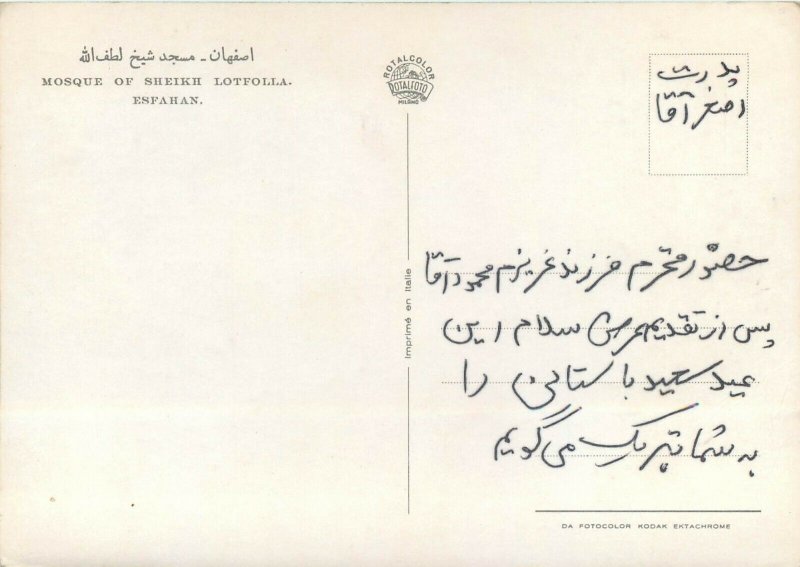 اصفهان - مسجد شیخ لطف‌الله
MOSQUE OF SHEIKH LOTFOLLA.
ESFAHAN.
ROTALCOLOR
ROTALFOTO
MILANO
Imprimé en Italie
پدرت
اصغر آقا
حضور محترم فرزند عزیزم محمود آقا
پس از تقدیم عرض سلام این
عید سعید باستانی را
به شما تبریک می گویم
DA FOTOCOLOR KODAK EKTACHROME